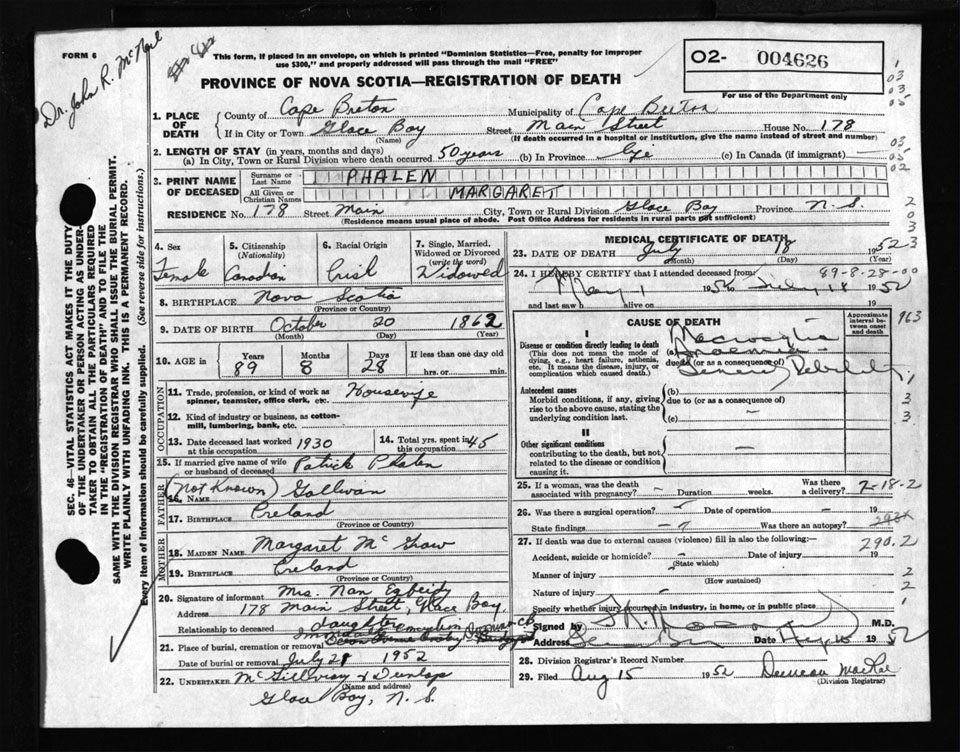 FORM 6
Dr. John R. McNeil
This form, if placed in an envelope, on which is printed "Dominion Statistics—Free, penalty for improper
use $300," and properly addressed will pass through the mail "FREE"
PROVINCE OF NOVA SCOTIA—REGISTRATION OF DEATH
O2- 004626
For use of the Department only
1. PLACE OF DEATH
County of Cape Breton Municipality of Cape Breton
If in City or Town Glace Bay Street Main Street House No. 178
(Name) (If death occurred in a hospital or institution, give the name instead of street and number)
2. LENGTH OF STAY (in years, months and days)
(a) In City, Town or Rural Division where death occurred 50 years (b) In Province Life (c) In Canada (if immigrant) —
3. PRINT NAME OF DECEASED
Surname or Last Name PHALEN
All Given or Christian Names MARGARET
RESIDENCE No. 178 Street Main City, Town or Rural Division Glace Bay Province N.S.
(Residence means usual place of abode. Post Office Address for residents in rural parts not sufficient)
4. Sex Female
5. Citizenship (Nationality) Canadian
6. Racial Origin Irish
7. Single, Married, Widowed or Divorced (write the word) Widowed
8. BIRTHPLACE Nova Scotia
(Province or Country)
9. DATE OF BIRTH October 20 1862
(Month) (Day) (Year)
10. AGE in Years 89 Months 8 Days 28 If less than one day old hrs. or min.
OCCUPATION
11. Trade, profession, or kind of work as spinner, teamster, office clerk, etc. Housewife
12. Kind of industry or business, as cotton-mill, lumbering, bank, etc.
13. Date deceased last worked at this occupation 1930
14. Total yrs. spent in at this occupation 45
15. If married give name of wife or husband of deceased Patrick Phalen
FATHER
16. Name (Not Known) Gallivan
17. Birthplace Ireland
(Province or Country)
MOTHER
18. Maiden Name Margaret McGraw
19. Birthplace Ireland
(Province or Country)
20. Signature of informant Mrs. Nan
Address 178 Main Street, Glace Bay,
Relationship to deceased daughter
21. Place of burial, cremation or removal
Date of burial or removal July 21 1952
22. UNDERTAKER McGillivray & Dunlop
(Name and address)
Glace Bay, N. S.
MEDICAL CERTIFICATE OF DEATH
23. DATE OF DEATH July 18 1952
(Month) (Day) (Year)
89-8-28-00
24. I HEREBY CERTIFY that I attended deceased from
May 1 1952 to July 18 1952
and last saw h alive on 19
CAUSE OF DEATH
Approximate interval between onset and death
I
Disease or condition directly leading to death
(This does not mean the mode of dying, e.g., heart failure, asthenia, etc. It means the disease, injury, or complication which caused death.)
(a) Macrocytic Anaemia
due to (or as a consequence of)
Senility
Antecedent causes
Morbid conditions, if any, giving rise to the above cause, stating the underlying condition last.
(b)
due to (or as a consequence of)
(c) —
II
Other significant conditions
contributing to the death, but not related to the disease or condition causing it. —
25. If a woman, was the death associated with pregnancy? — Duration weeks. Was there a delivery?
7-18-2
26. Was there a surgical operation? — Date of operation — 19
State findings — Was there an autopsy?
27. If death was due to external causes (violence) fill in also the following:— 290.2
Accident, suicide or homicide? Date of injury 19
(State which)
Manner of injury
(How sustained)
Nature of injury
Specify whether injury occurred in industry, in home, or in public place
Signed by M.D.
Address Date 1952
28. Division Registrar's Record Number
29. Filed Aug 15 1952 Duncan MacRae
(Division Registrar)
SEC. 46—VITAL STATISTICS ACT MAKES IT THE DUTY
OF THE UNDERTAKER OR PERSON ACTING AS UNDER-
TAKER TO OBTAIN ALL THE PARTICULARS REQUIRED
IN THE "REGISTRATION OF DEATH" AND TO FILE THE
SAME WITH THE DIVISION REGISTRAR WHO SHALL ISSUE THE BURIAL PERMIT.
WRITE PLAINLY WITH UNFADING INK. THIS IS A PERMANENT RECORD.
Every item of information should be carefully supplied. (See reverse side for instructions.)